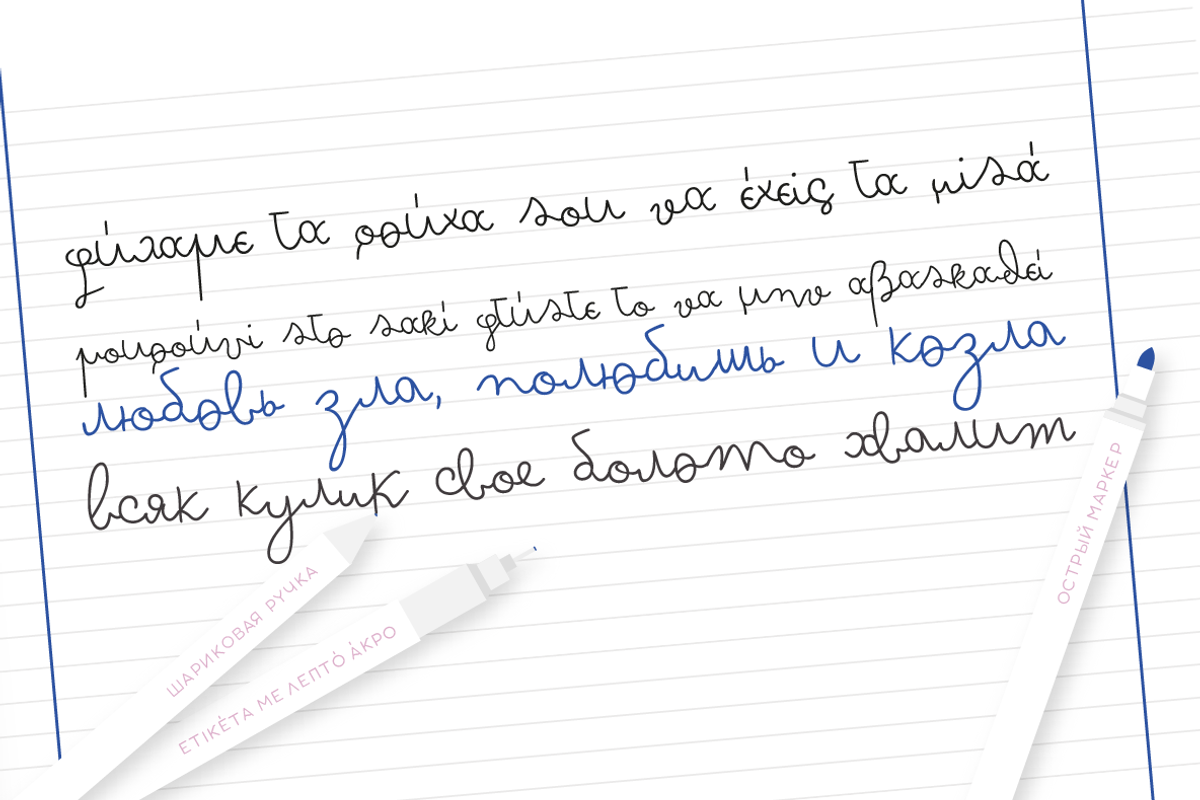 φύλαμε τα ρούχα σου να έχεις τα μισά
μουρούνι στο σακί φτύστε το να μην αβασκαθεί
любовь зла, полюбишь и козла
всяк кулик свое болото хвалит
ШАРИКОВАЯ РУЧКА
ΕΤΙΚΈΤΑ ΜΕ ΛΕΠΤΌ ΆΚΡΟ
ОСТРЫЙ МАРКЕР